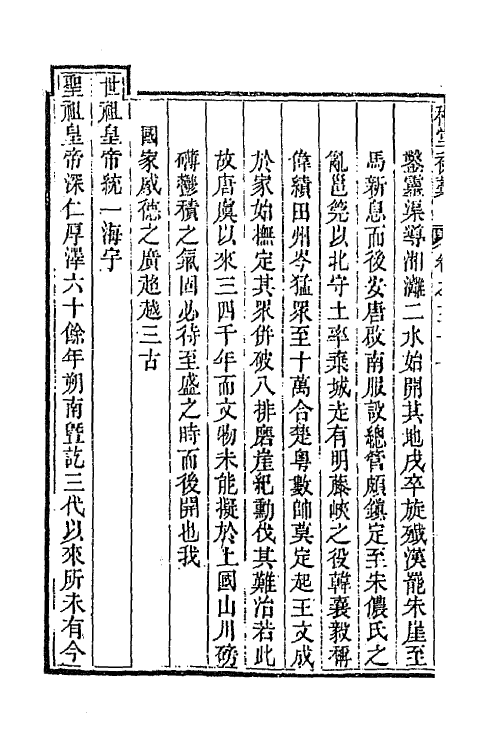 鑿靈渠導湘灕二水始開其地戍卒旋殲漢罷朱崖至
馬新息而後安唐啟南服設總管頗鎭定至朱儂氏之
亂邕筦以北守土率棄城走有明藤峽之役韓襄毅稱
偉績田州岑猛眾至十萬合楚粵數帥莫定起王文成
於家始撫定其眾併破八排磨崖紀勳伐其難治若此
故唐虞以來三四千年而文物未能擬於上國山川磅
礴鬱積之氣固必待至盛之時而後開也我
國家威德之廣超越三古
世祖皇帝統一海宇
聖祖皇帝深仁厚澤六十餘年朔南曁訖三代以來所未有今